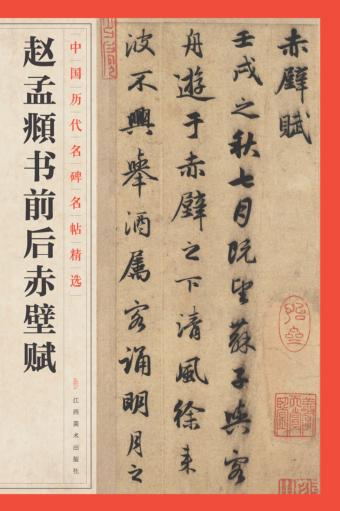 中国历代名碑名帖精选
赵孟頫书前后赤壁赋
江西美术出版社
赤壁賦
壬戌之秋七月既望蘇子與客
舟遊于赤壁之下清風徐来
波不興舉酒属客誦明月之